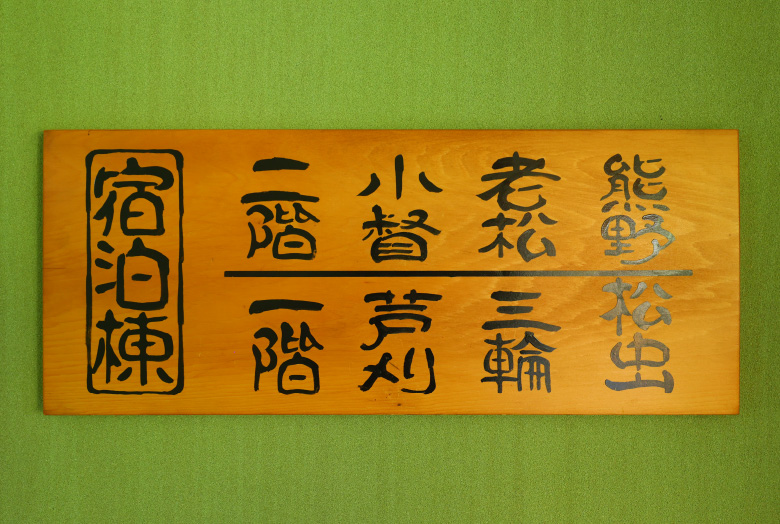 宿泊棟
二階 小督 老松 熊野
一階 芦刈 三輪 松虫